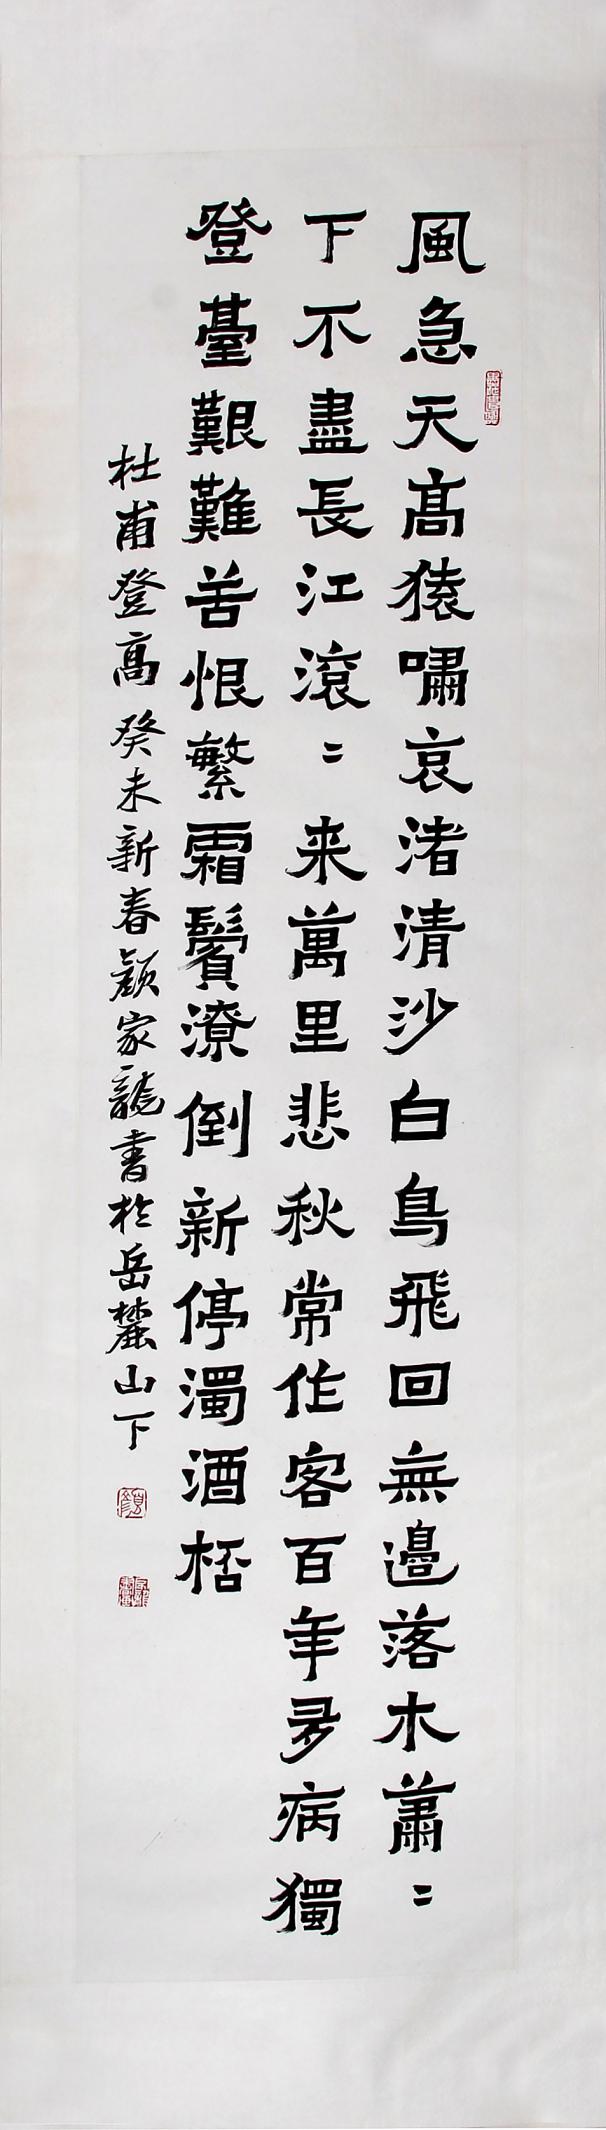 風急天高猿嘯哀渚清沙白鳥飛回無邊落木蕭〻
下不盡長江滾〻来萬里悲秋常作客百年多病獨
登臺艱難苦恨繁霜鬢潦倒新停濁酒桮
杜甫登高癸未新春顏家龍書於岳麓山下